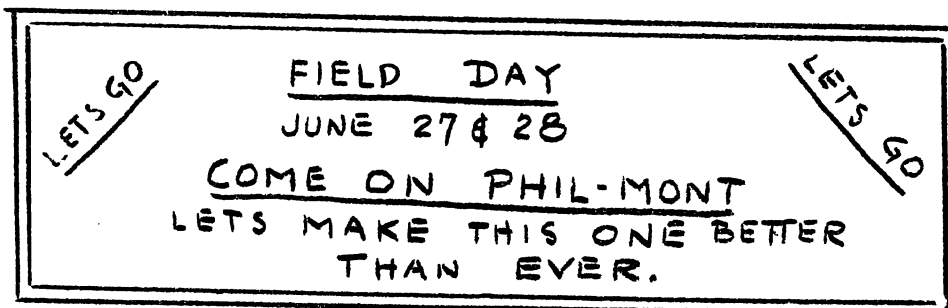 LETS GO
FIELD DAY
LETS GO
JUNE 27 & 28
COME ON PHIL-MONT
LETS MAKE THIS ONE BETTER
THAN EVER.